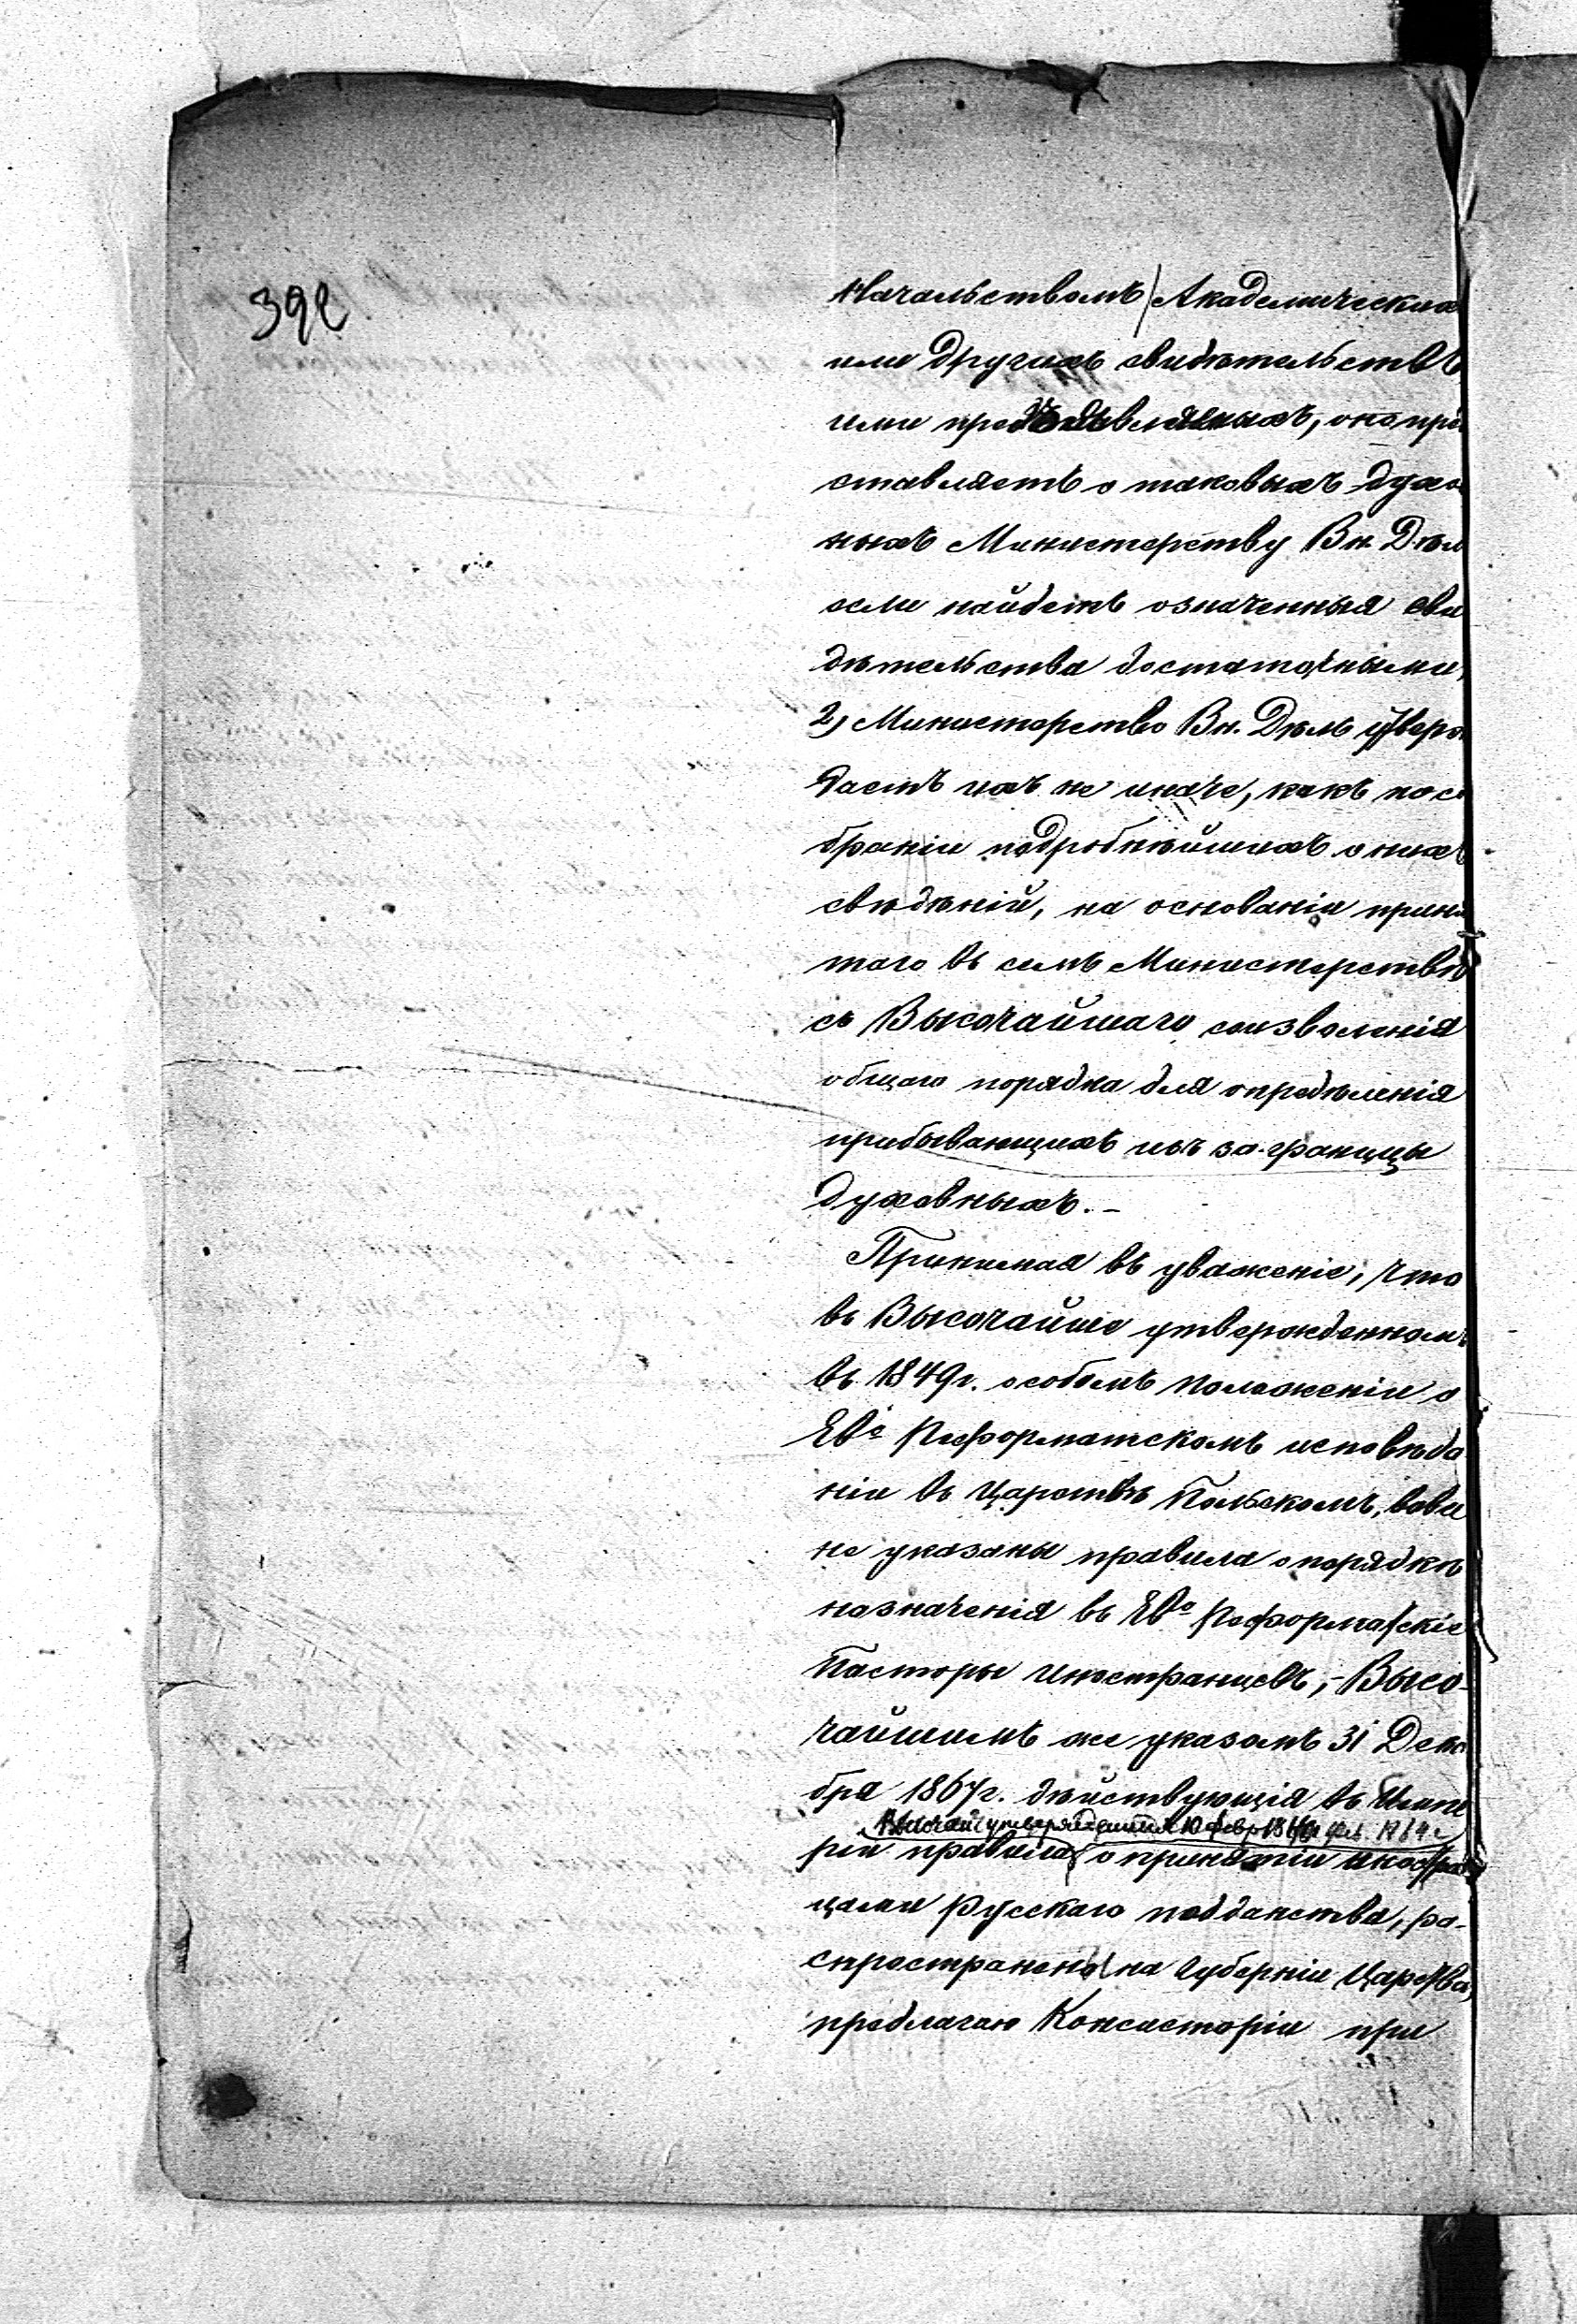 392
Начальствомъ Академическихъ
или другихъ свидѣтельствъ
ими предъявляемыхъ, оно пред
ставляетъ о таковыхъ духов
ныхъ Министерству Вн. Дѣл
если найдетъ означенныя сви
дѣтельства достаточными,
2, Министерство Вн. Дѣлъ утверж
даетъ ихъ не иначе, какъ по со
браніи подробнѣйшихъ о нихъ
свѣдѣній, на основаніи приня
таго въ семъ Министерствѣ
съ Высочайшаго соизволенія
общаго порядка для опредѣленія
прибывающихъ изъ за-границы
духовныхъ. –
Принимая въ уваженіе, что
въ Высочайше утвержденномъ
въ 1849 г. особомъ положеніи о
Евᵒ Реформатскомъ исповѣда
ніи въ Царствѣ Польскомъ, вовсе
не указаны правила о порядкѣ
назначенія въ Евᵒ Реформатскіе
Пасторы иностранцевъ, – Высо-
чайшимъ же указомъ 31 Дека
бря 1867 г. дѣйствующія въ Импе
Высочайше утвержденныя 10 февр. 1864 г.
ріи правила о принятіи иностран
цами Русскаго подданства, ра-
спространены на Губерніи Царства,
предлагаю Консисторіи при